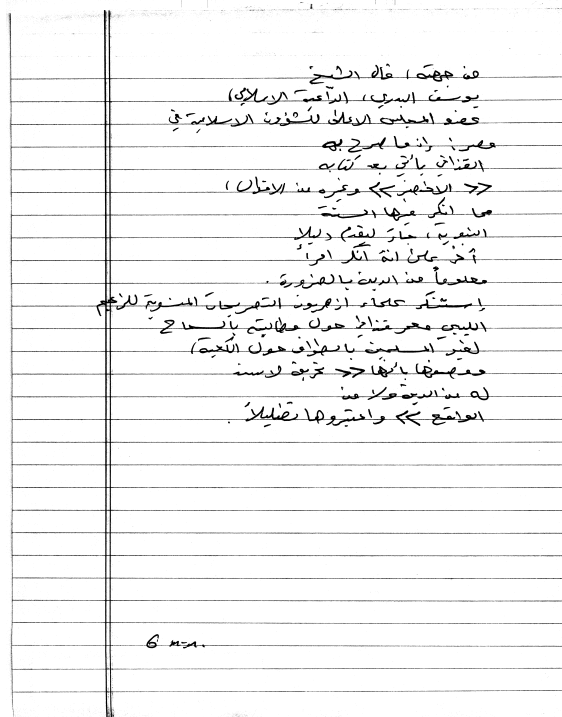 من جهته، قال الشيخ
يوسف البدري، الداعية الاسلامي،
عضو المجلس الاعلى للشؤون الاسلامية في
مصر: إن ما صرح به
القذافي يأتي بعد كتابه
<< الاخضر >> وغيره من الاقوال،
مما انكر فيها السنة
النبوية، جاء ليقدم دليلا
آخر على انه أنكر امرأ
معلوماً من الدين بالضرورة.
إستنكر علماء ازهريون التصريحات المنسوبة للزعيم
الليبي معمر قذافي حول مطالبته بالسماح
لغير المسلمين بالطواف حول الكعبة،
ووصفوها بانها << تخريفة لا سند
له من الدين ولا من
الواقع >> واعتبروها تضليلاً.
6